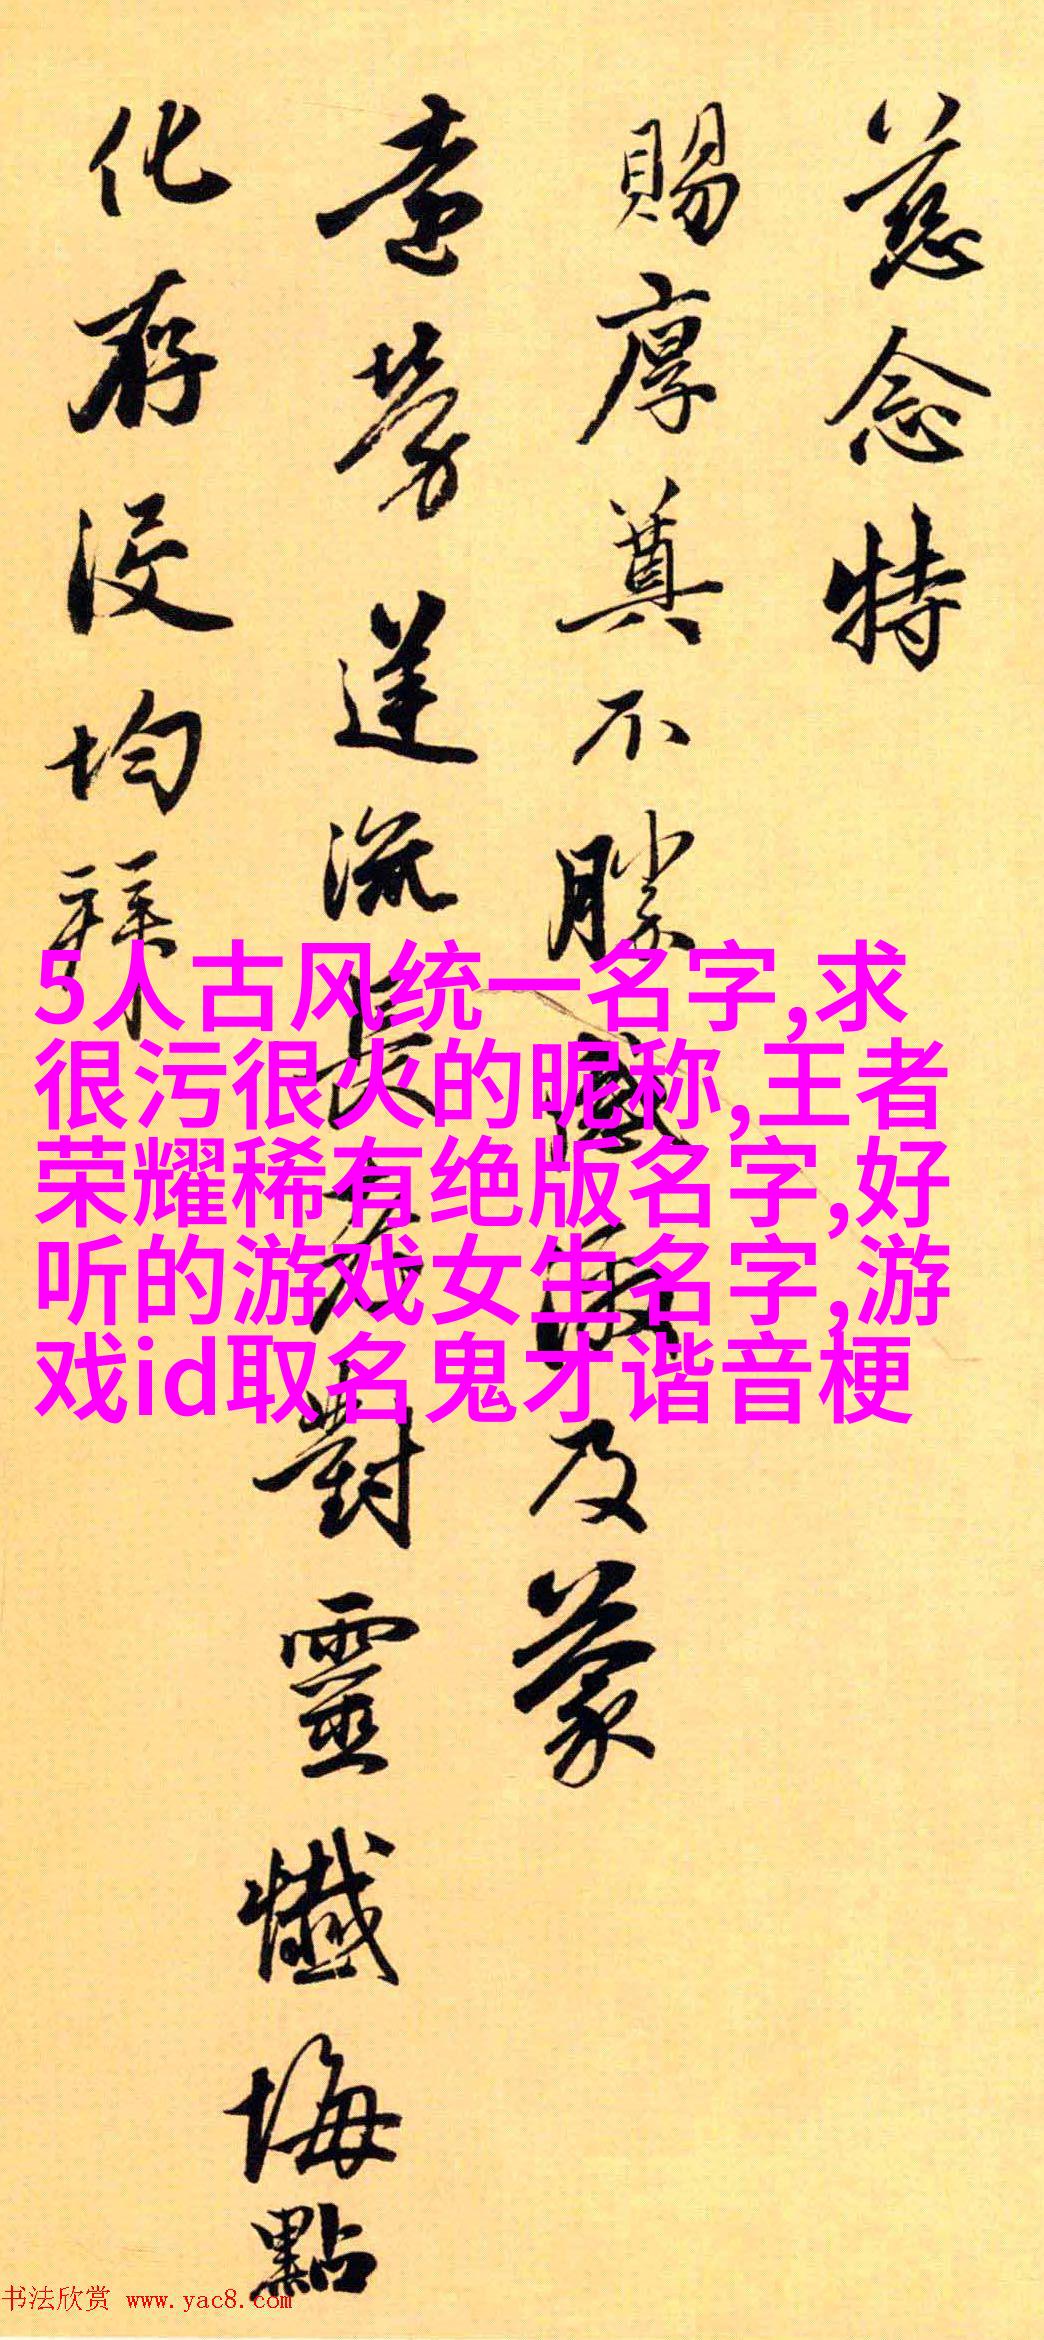 慈念特
賜厚奠不勝感激及蒙
遠勞流長老對靈懺悔點
化存没均拜
5人古风统一名字,求
很污很火的昵称,王者
荣耀稀有绝版名字,好
听的游戏女生名字,游
戏id取名鬼才谐音梗
书法欣赏 www.yac8.com